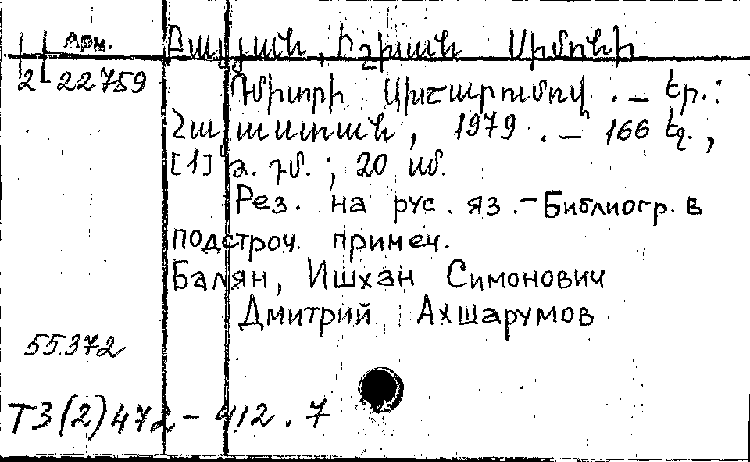 Арм. Բալյան, Իշխան Սիմոնի
2 22759 Դմիտրի Ախշարումով. — Եր.:
Հայաստան, 1979. — 166 էջ,
[1] չ. դմ.; 20 սմ.
Рез. на рус. яз. — Библиогр. в
подстроч. примеч.
Балян, Ишхан Симонович
Дмитрий Ахшарумов
55.372
Т3(2)472-412.7